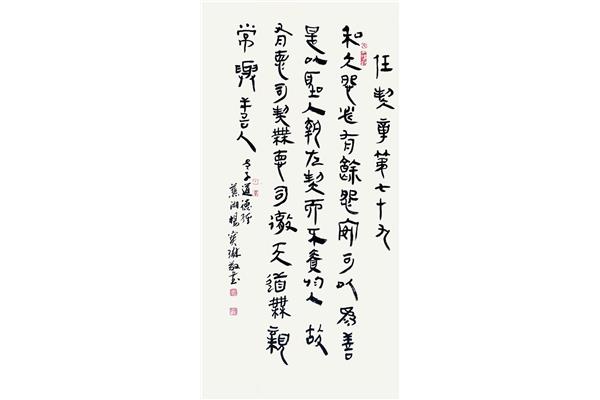 任契章第七十九
和大怨必有餘怨安可以爲善
是以聖人執左契而不責於人故
有德司契無德司徹天道無親
常與善人
老子道德經
蕪湖楊敬書